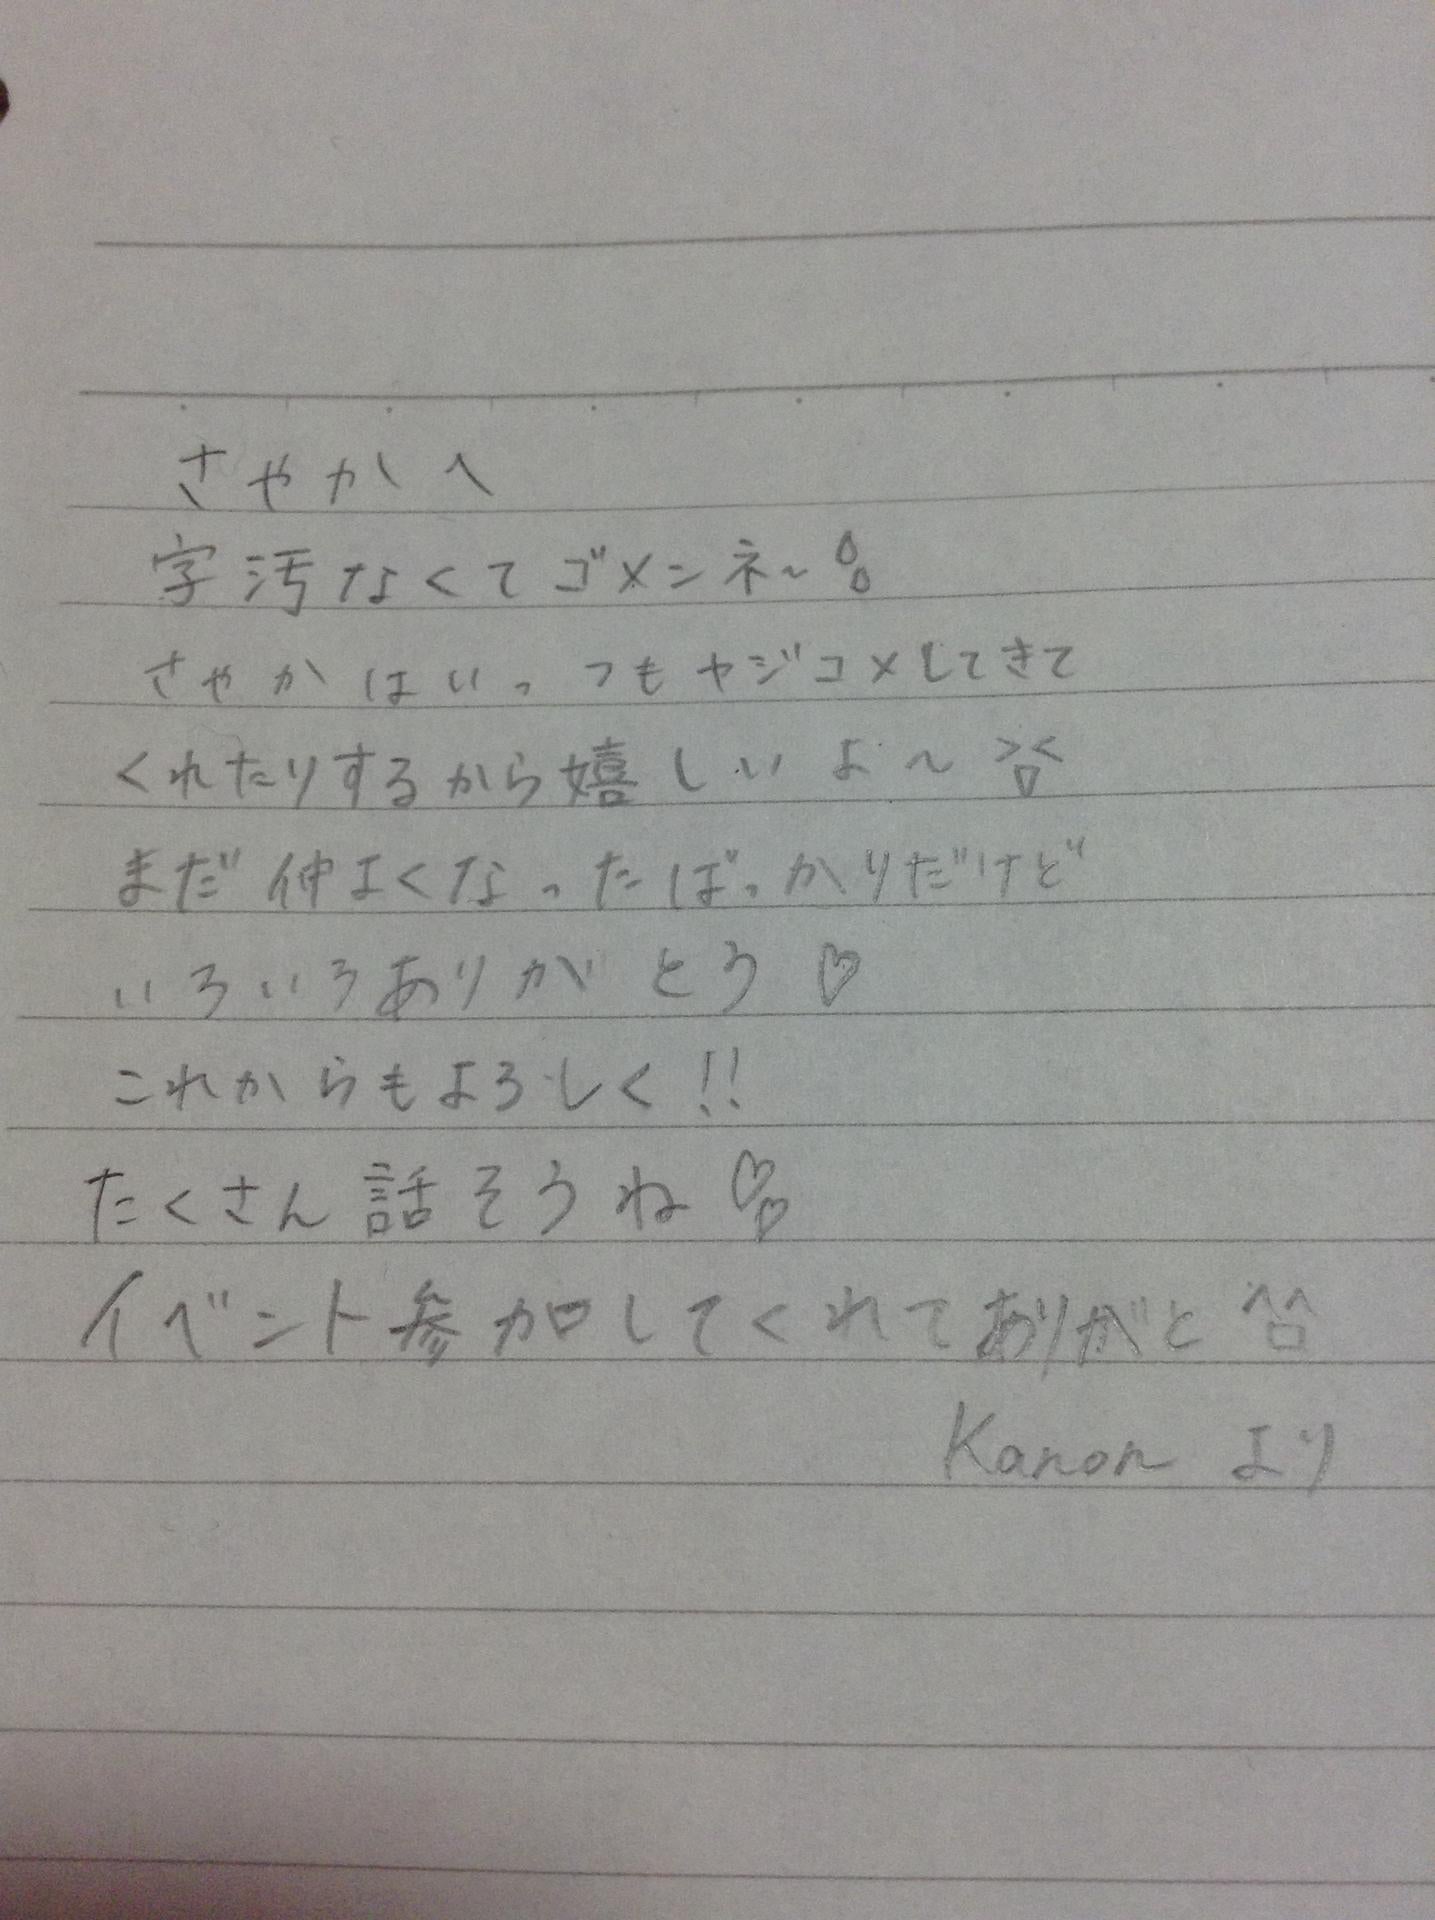 さやかへ
字汚なくてゴメンネ〜
さやかはいっつもヤジコメしてきて
くれたりするから嬉しいよ〜
まだ仲よくなったばっかりだけど
いろいろありがとう♡
これからもよろしく!!
たくさん話そうね♡♡
イベント参加してくれてありがと^^
Kanonより